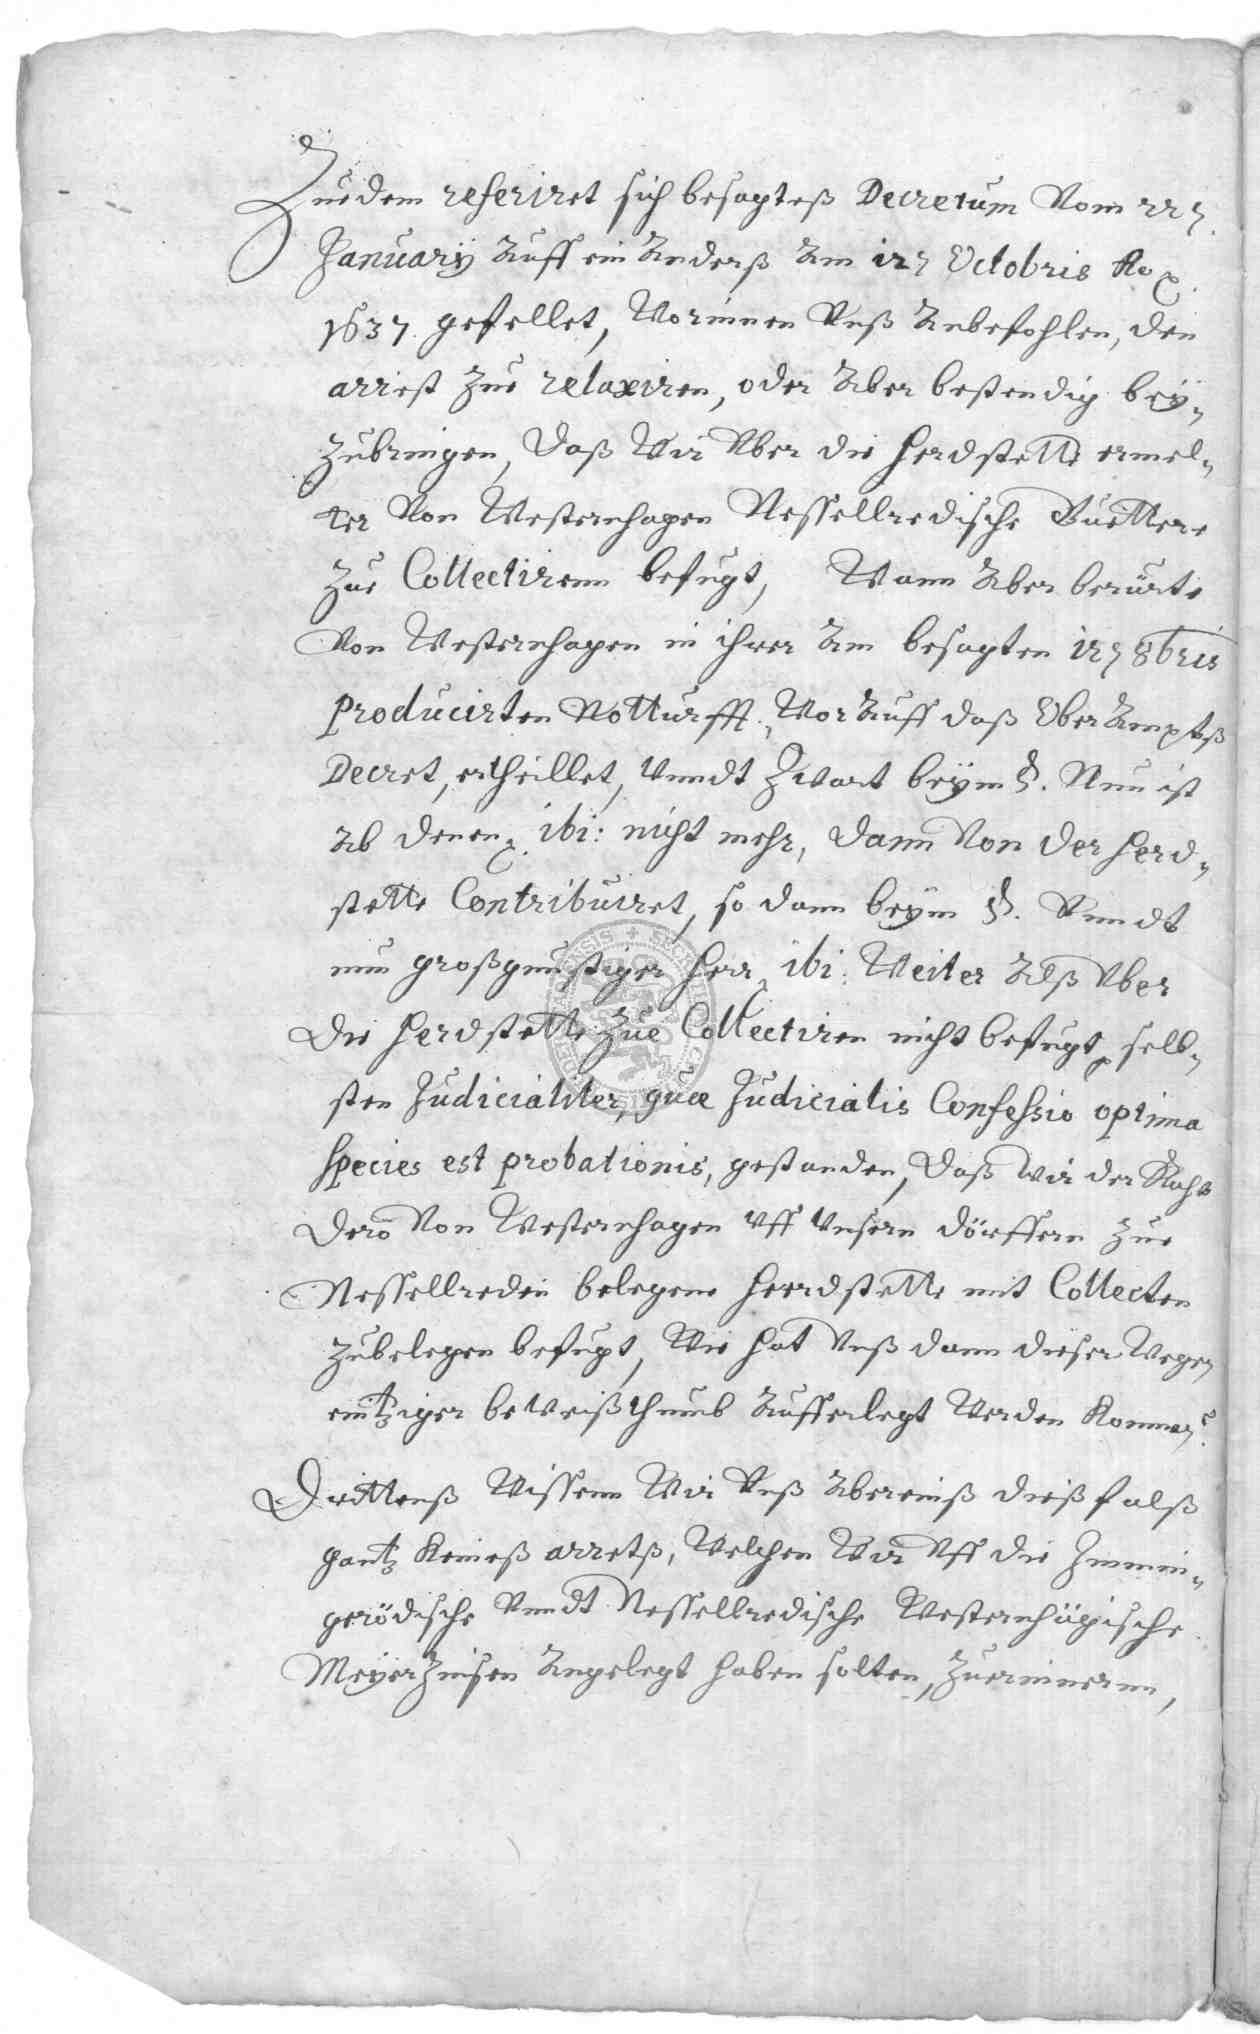 Zuedem referiret sich besagteß Decretum Vom 22ᵗ.
January Auff ein Anderß Am 12ᵗ Octobris Ao
1637. gefellet, Worinnen Unß Anbefohlen, den
arrest zue relaxiren, oder Aber bestendig bey-
zubringen, Daß Wir Uber die Herdstette ermel-
ter Von Westernhagen Nesselredische Guettere
zue Collectirenn befugt, Wann Aber berürte
Von Westernhagen in ihrer Am besagten 12ᵗ 8bris
producirten Notturfft, WorAuff daß OberAmptß
Decret, ertheillet, Unndt Zwart beym §. Nun ist
Ab denen ibi: nicht mehr, Dann Von der Herd-
stette Contribuiret, so dann beym §. Unndt
nun großgunstiger Herr, ibi: Weiter Alß Uber
Die Herdstette zue Collectiren nicht befugt, selb-
sten Judicialiter, quae Judicialis Confessio optima
species est probationis, gestanden, Daß Wir der Raht
Dero Von Westernhagen Uff Unsern Dörffern zue
Nesselreden belegene Heerdstette mit Collecten
zubelegen befugt, Wie hat Unß dann dieser Wegen
eintziger beweißthumb Aufferlegt Werden Konnen?
Drittenß Wissenn Wir Unß Abereinß dießfalß
gantz Keineß arrestß, Welchen Wir Uff die Immin-
gerödische Unndt Nesselredische Westernhägische
Meyerzinsen Angelegt haben solten, zuerinnernn,